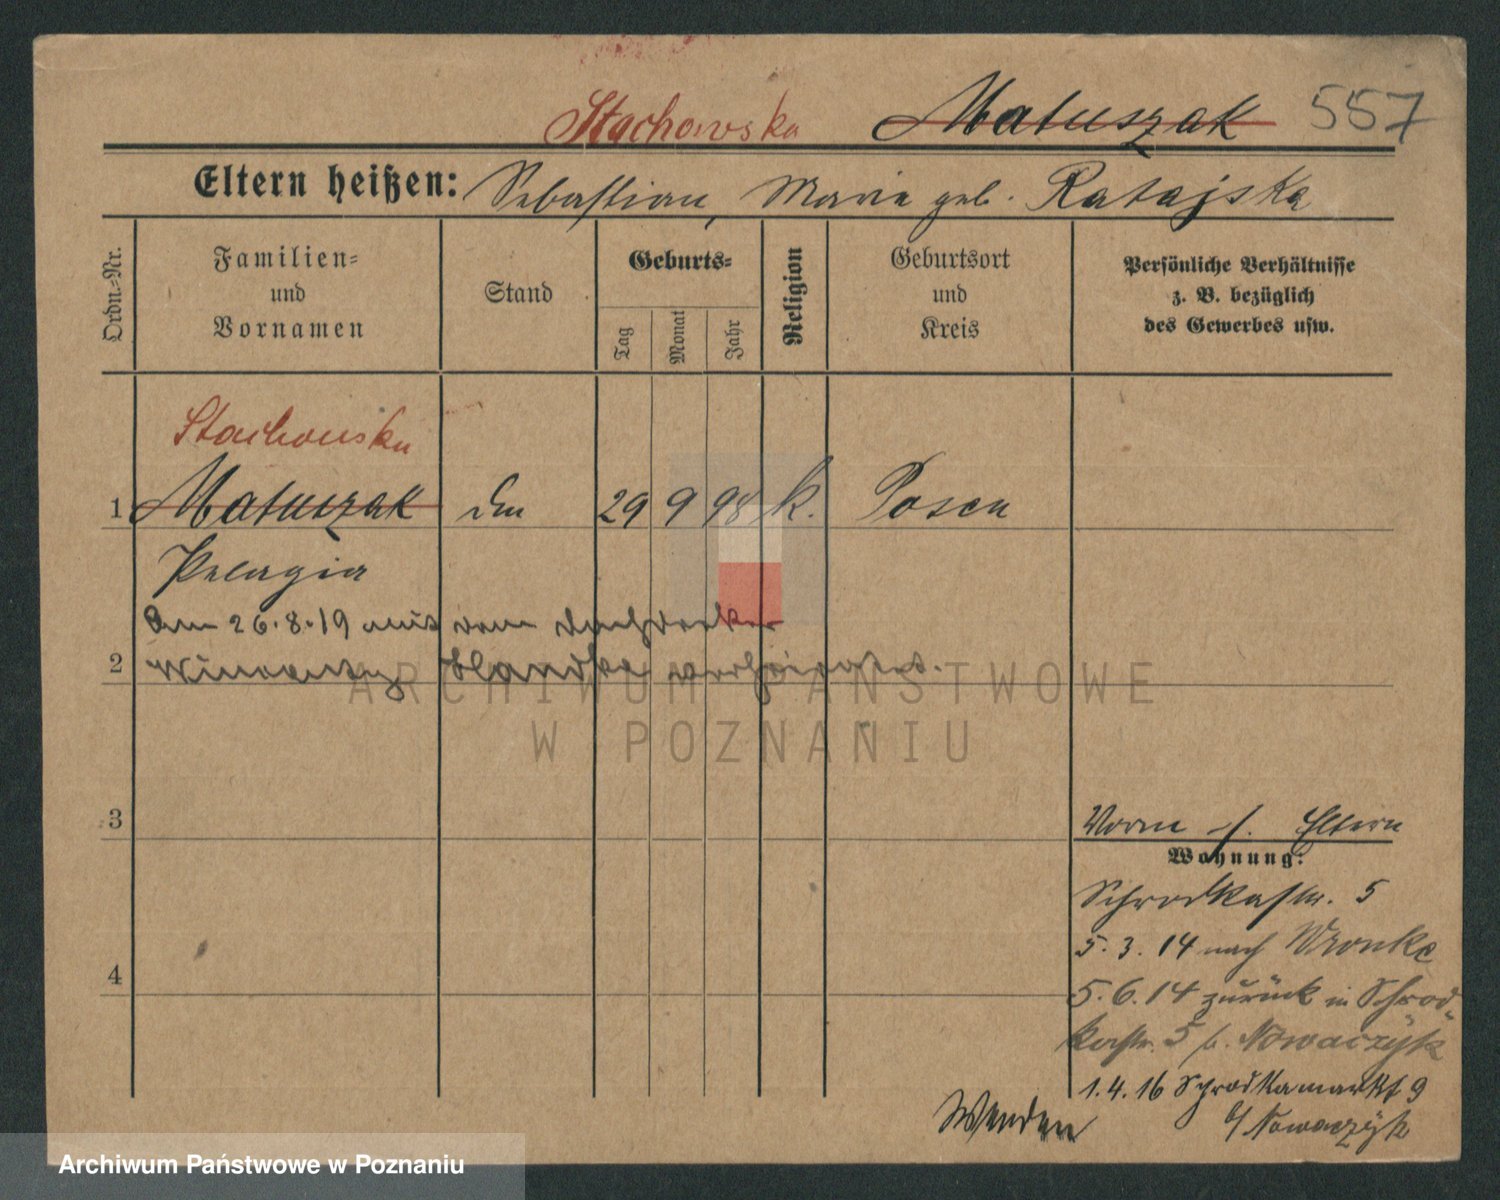 Stachowska Matuszak 557
Eltern heißen: Sebastian, Marie geb. Ratajska
Ordn.-Nr.
Familien-
und
Vornamen
Stand
Geburts-
Tag
Monat
Jahr
Religion
Geburtsort
und
Kreis
Persönliche Verhältnisse
z. B. bezüglich
des Gewerbes usw.
Stachowska
1 Matuszak 29 9 98 k. Posen
Pelagia
Am 26.8.19 mit dem Dachdecker
2 verheiratet.
3
4
Vorm. Eltern
Wohnung:
Schrodkastr. 5
5.3.14 nach Wronke
5.6.14 zurück in Schrod-
kastr. 5 b. Nowaczyk
1.4.16 Schrodkamarkt 9
b/ Nowaczyk
Wenden
ARCHIWUM PAŃSTWOWE
W POZNANIU
Archiwum Państwowe w Poznaniu